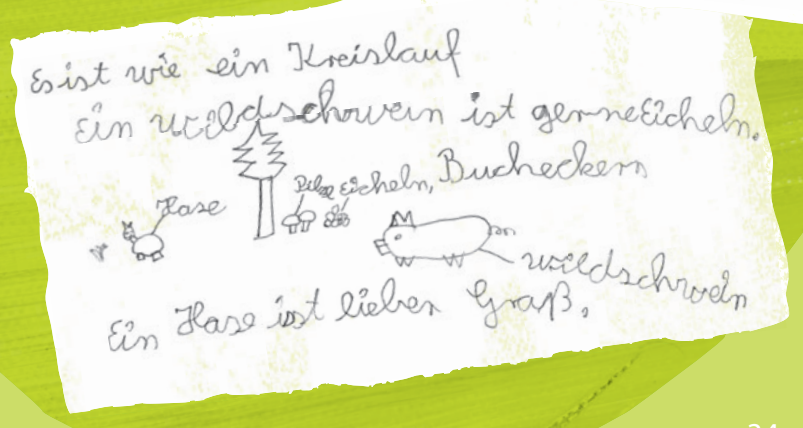 Es ist wie ein Kreislauf
Ein wildschwein ist gerne Eicheln.
Hase Pilze Eicheln, Bucheckern
wildschwein
Ein Hase isst lieber Graß.